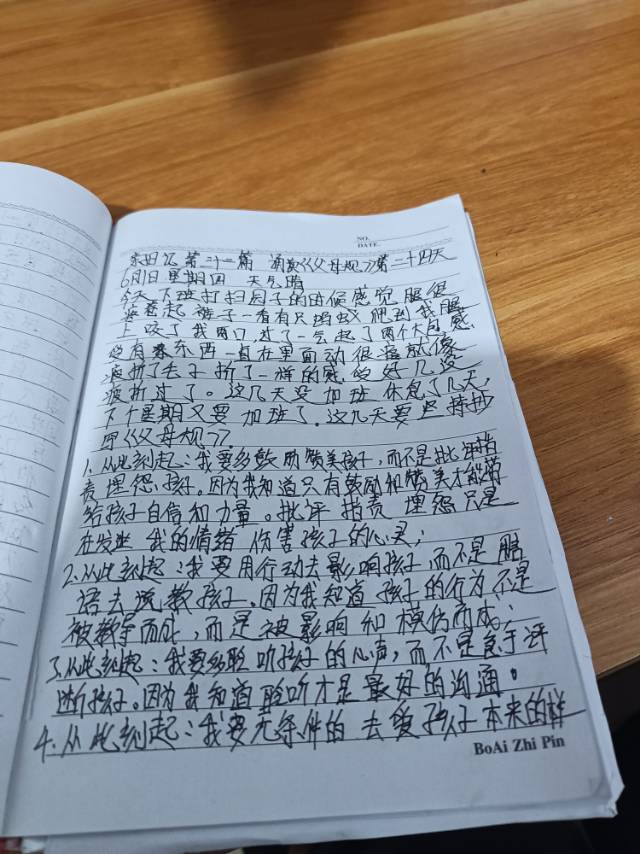 NO.
DATE.
亲日记 第二十一篇 诵读《父母规》第二十四天
6月1日 星期四 天气晴
今天下班打扫园子的时候感觉腿很
疼卷起裤子一看有只蚂蚁爬到我腿
上咬了我两口,过了一会起了两个大包感
觉有东西一直在里面动很 就像
疲折了去了折了一样的感觉好几没
疲折过了。这几天没加班休息了几天,
下个星期又要加班了。这几天要坚持抄
写《父母规》
1.从此刻起:我要多鼓励赞美孩子,而不是批评指
责埋怨孩子。因为我知道只有鼓励和赞美才能带
给孩子自信和力量。批评 指责 埋怨只是
在发泄我的情绪 伤害孩子的心灵;
2.从此刻起:我要用行动去影响孩子,而不是用语
语去说教孩子,因为我知道孩子的行为不是
被教导而成,而是被影响和模仿而成;
3.从此刻起:我要多聆听孩子的心声,而不是急于评
断孩子。因为我知道聆听才是最好的沟通。
4.从此刻起:我要无条件的去爱孩子本来的样
BoAi Zhi Pin